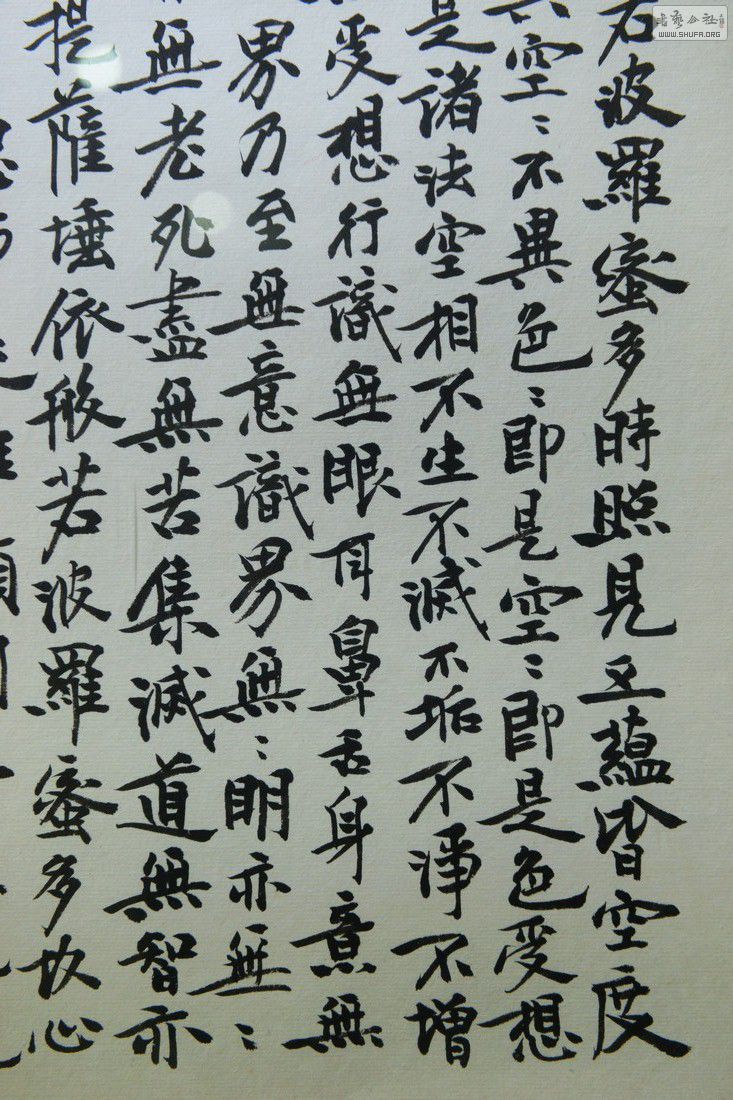 若波羅蜜多時照見五蘊皆空度
空〻不異色〻即是空〻即是色受想
是諸法空相不生不滅不垢不淨不增
受想行識無眼耳鼻舌身意無
界乃至無意識界無〻明亦無〻
無老死盡無苦集滅道無智亦
提薩埵依般若波羅蜜多故心
書藝公社
WWW.SHUFA.ORG